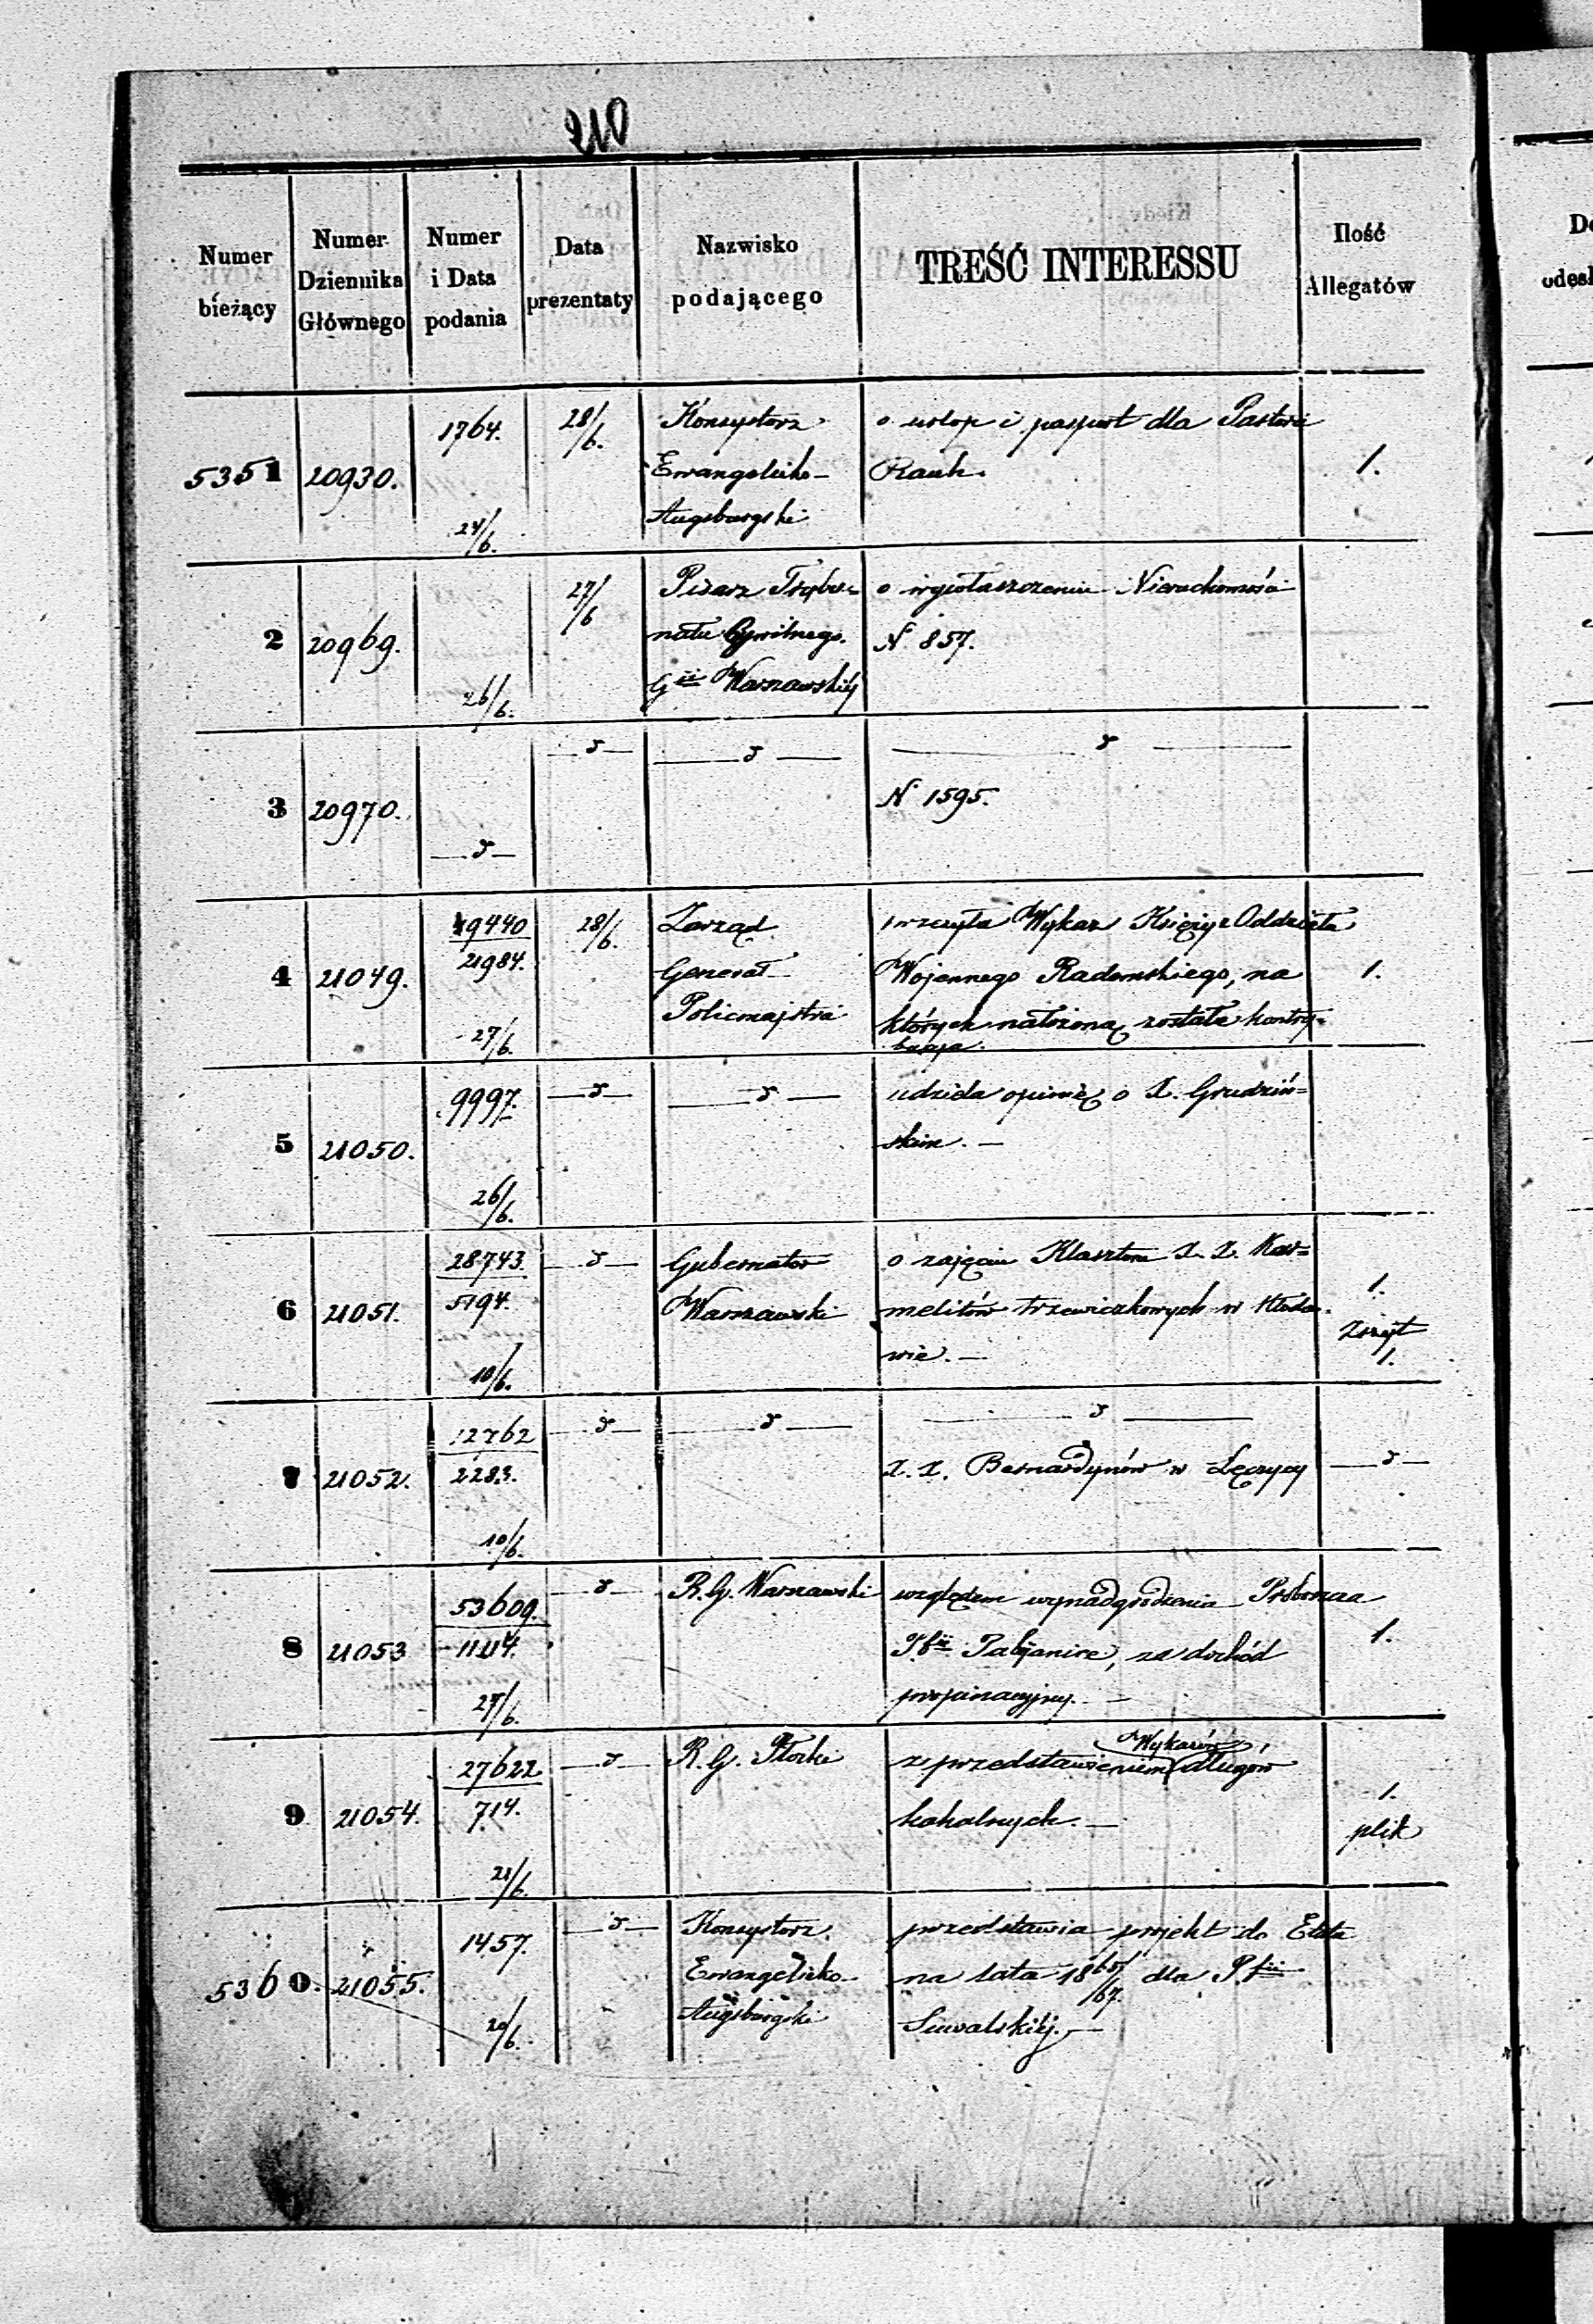 210
Numer bieżący
Numer Dziennika Głównego
Numer i Data podania
Data prezentaty
Nazwisko podającego
TREŚĆ INTERESSU
Ilość Allegatów
5351 20930. 1764. 24/6. 28/6.
Konsystorz
Ewangelicko-
Augsburgski
o urlop i paszport dla Pastora
Rauh.
1.
2 20969. 26/6. 27/6
Pisarz Trybu=
nału Cywilnego
Gii Warszawskiej
o wywłaszczeniu Nieruchomości
N 857.
3 20970. —d— —d— —d— —d—
N 1595.
4 21049. 19440 21984. 27/6. 28/6.
Zarząd
Generał
Policmajstra
przesyła Wykaz Księży z Oddziału
Wojennego Radomskiego, na
których nałożoną została kontry=
bucja.
1.
5 21050. 9997. 26/6. —d— —d—
udziela opinię o X. Grudziń=
skim. —
6 21051. 28743 5194. 10/6. —d—
Gubernator
Warszawski
o zajęciu Klasztoru X. X. Kar=
melitów trzewiczkowych w Kłoda
wie. —
1.
Zeszyt
1.
7 21052. 12762 2283. 10/6. —d— —d— —d—
X. X. Bernardynów w Łęczycy —d—
8 21053 53609. 11114. 27/6. —d—
R. G. Warszawski
względem wynadgrodzenia Proboszcza
P.fii Pabjanice, za dochód
propinacyjny. —
1.
9 21054. 27622 714. 21/6. —d—
R. G. Płocki
z przedstawieniem Wykazów długów
kahalnych. —
1.
plik
5360. 21055. 1457. 20/6. —d—
Konsystorz
Ewangelicko-
Augsburgski
przedstawia projekt do Etatu
na lata 1865/67. dla P.fii
Suwalskiej. —